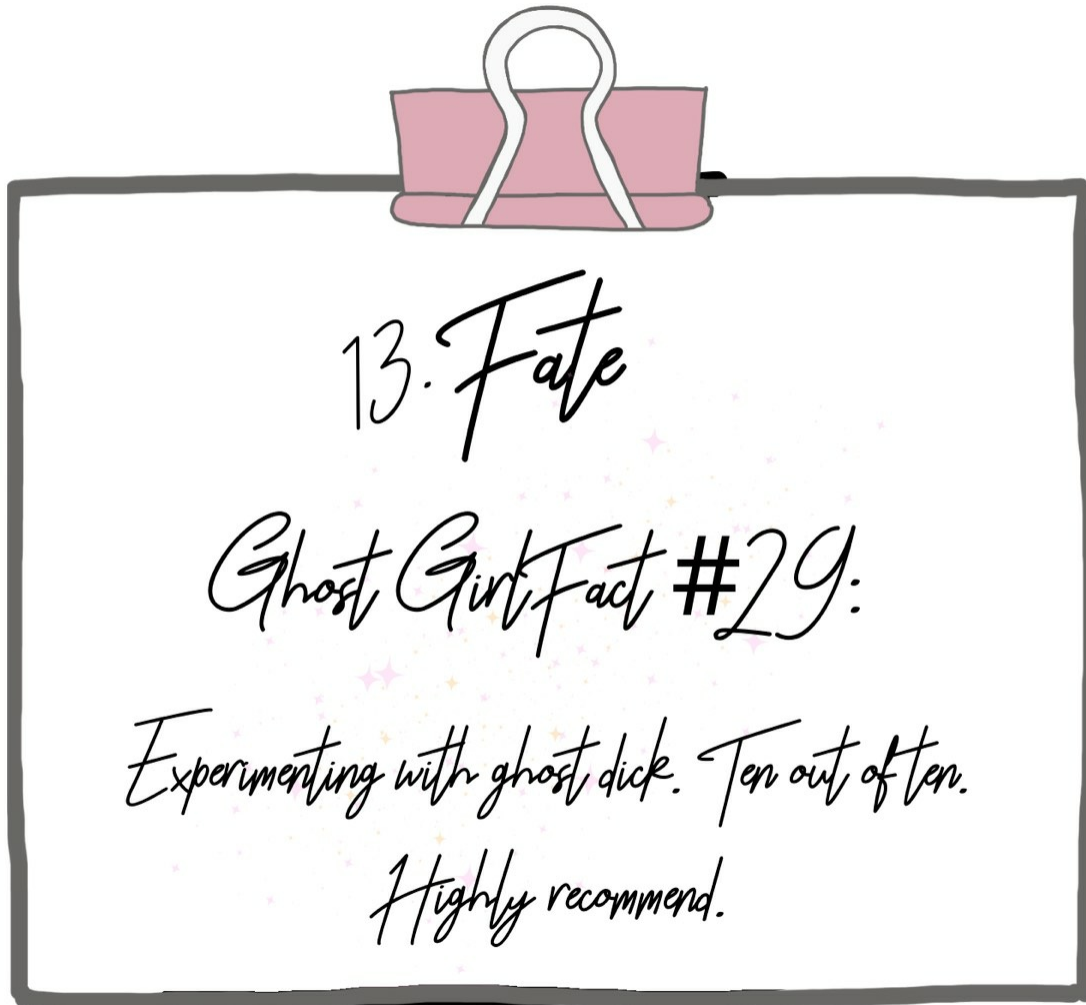 13. Fate
Ghost Girl Fact #29:
Experimenting with ghost dick. Ten out of ten.
Highly recommend.